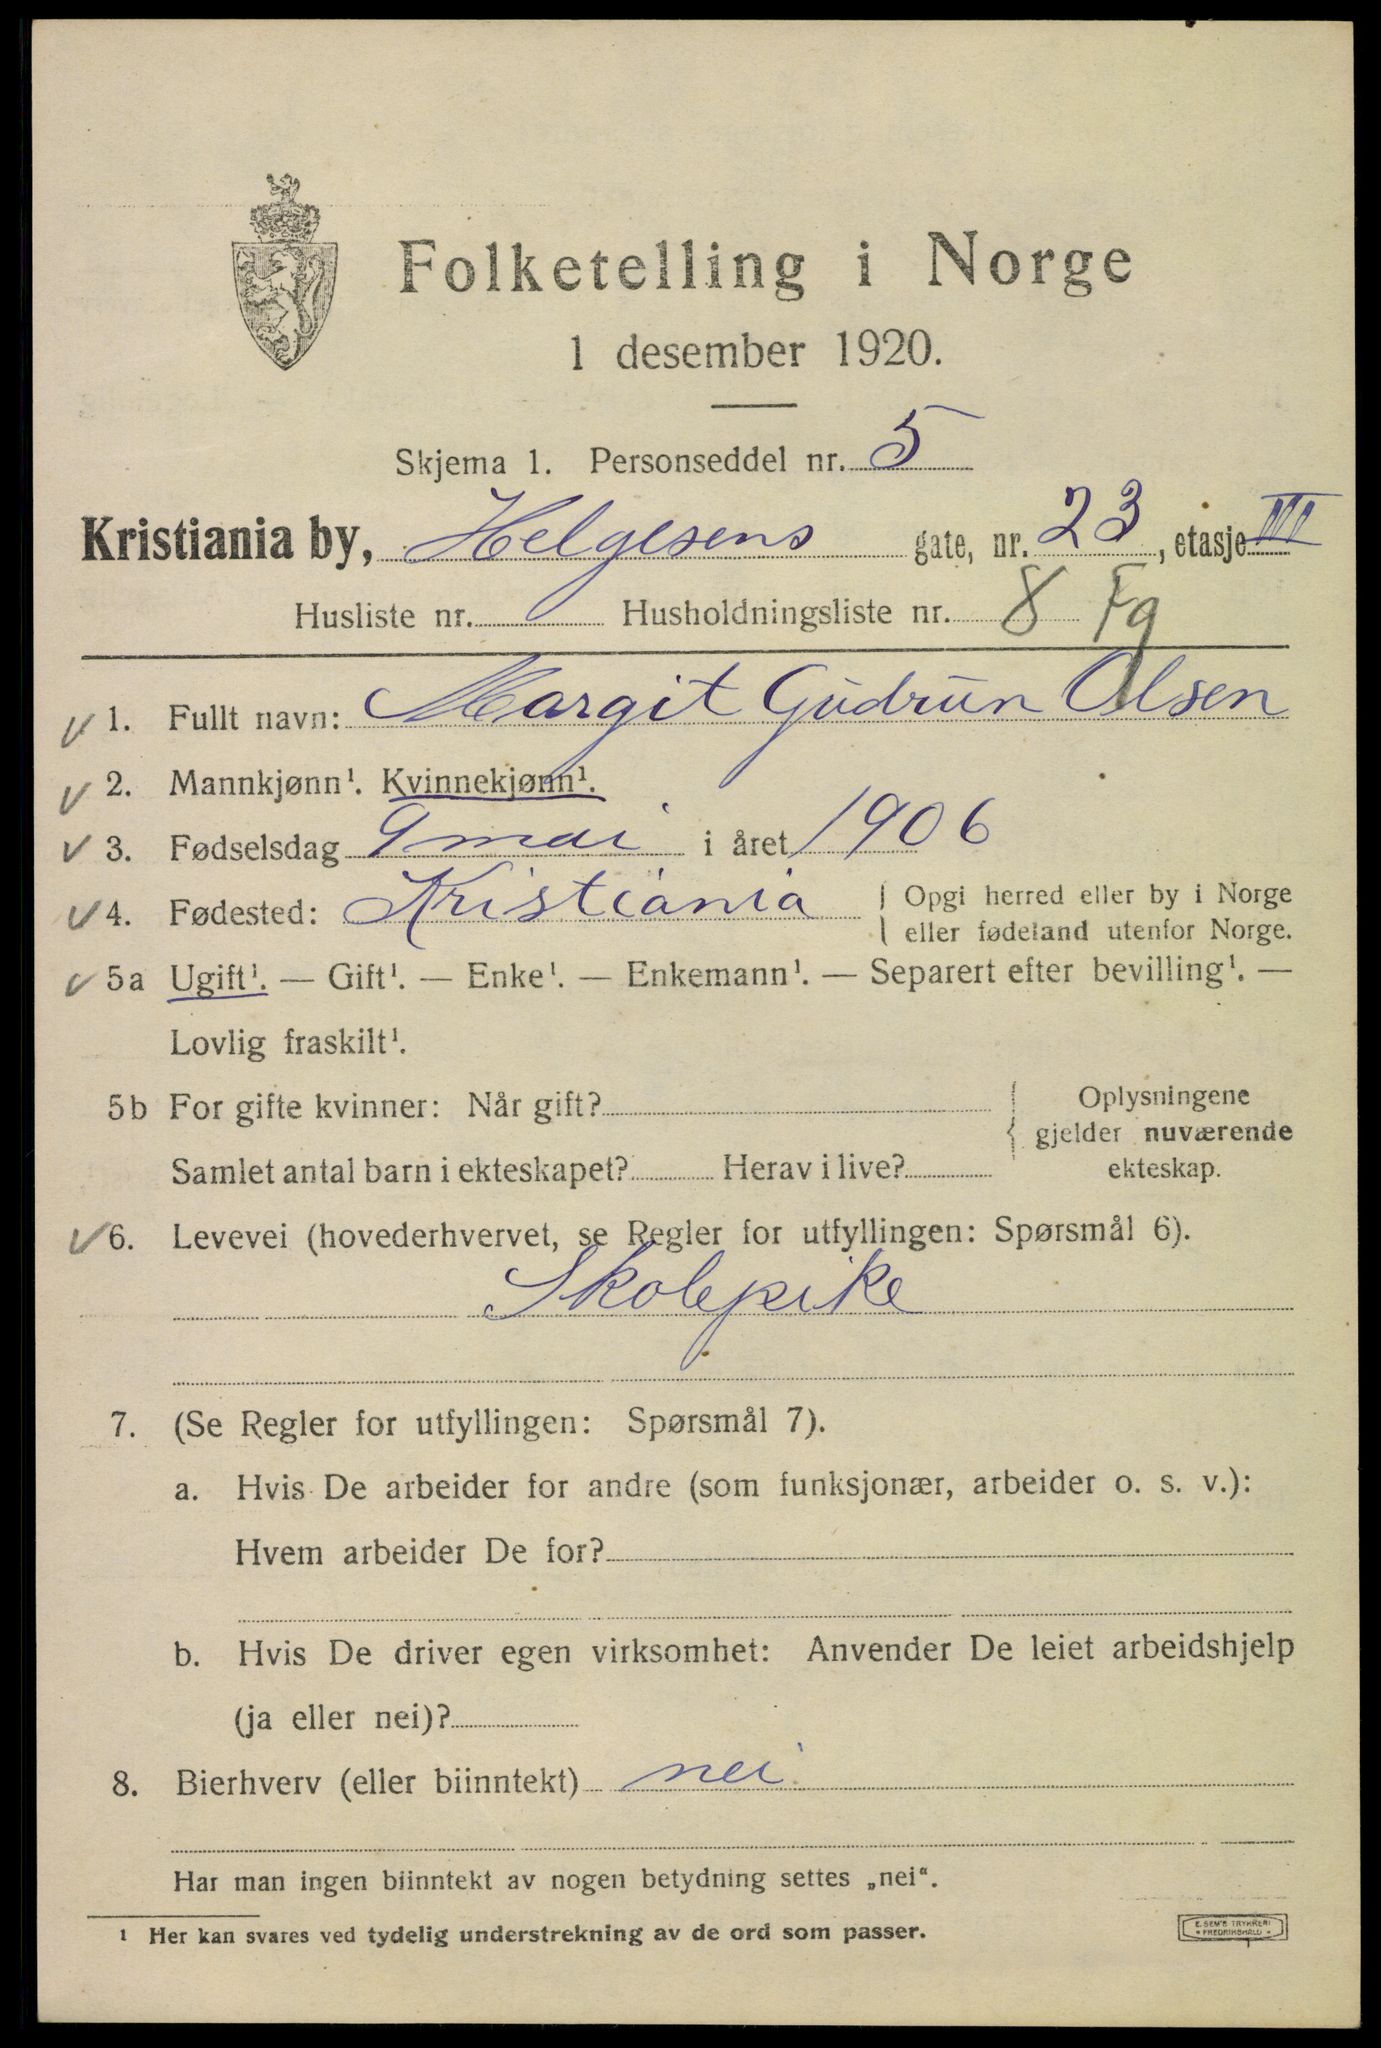 Folketelling i Norge
1 desember 1920.
Skjema 1. Personseddel nr. 5
Kristiania by, Helgesens gate, nr. 23, etasje III
Husliste nr. Husholdningsliste nr. 8 Fg
√ 1. Fullt navn: Margit Gudrun Olsen
√ 2. Mannkjønn¹. Kvinnekjønn¹.
√ 3. Fødselsdag 9 mai i året 1906
√ 4. Fødested: Kristiania { Opgi herred eller by i Norge
eller fødeland utenfor Norge.
√ 5a Ugift¹. — Gift¹. — Enke¹. — Enkemann¹. — Separert efter bevilling¹. —
Lovlig fraskilt¹.
5b For gifte kvinner: Når gift? { Oplysningene
gjelder nuværende
Samlet antal barn i ekteskapet? Herav i live? ekteskap.
√ 6. Levevei (hovederhvervet, se Regler for utfyllingen: Spørsmål 6).
Skolepike
7. (Se Regler for utfyllingen: Spørsmål 7).
a. Hvis De arbeider for andre (som funksjonær, arbeider o. s. v.):
Hvem arbeider De for?
b. Hvis De driver egen virksomhet: Anvender De leiet arbeidshjelp
(ja eller nei)?
8. Bierhverv (eller biinntekt) nei
Har man ingen biinntekt av nogen betydning settes „nei“.
¹ Her kan svares ved tydelig understrekning av de ord som passer.
E. SEM'S TRYKKERI
* FREDRIKSHALD *